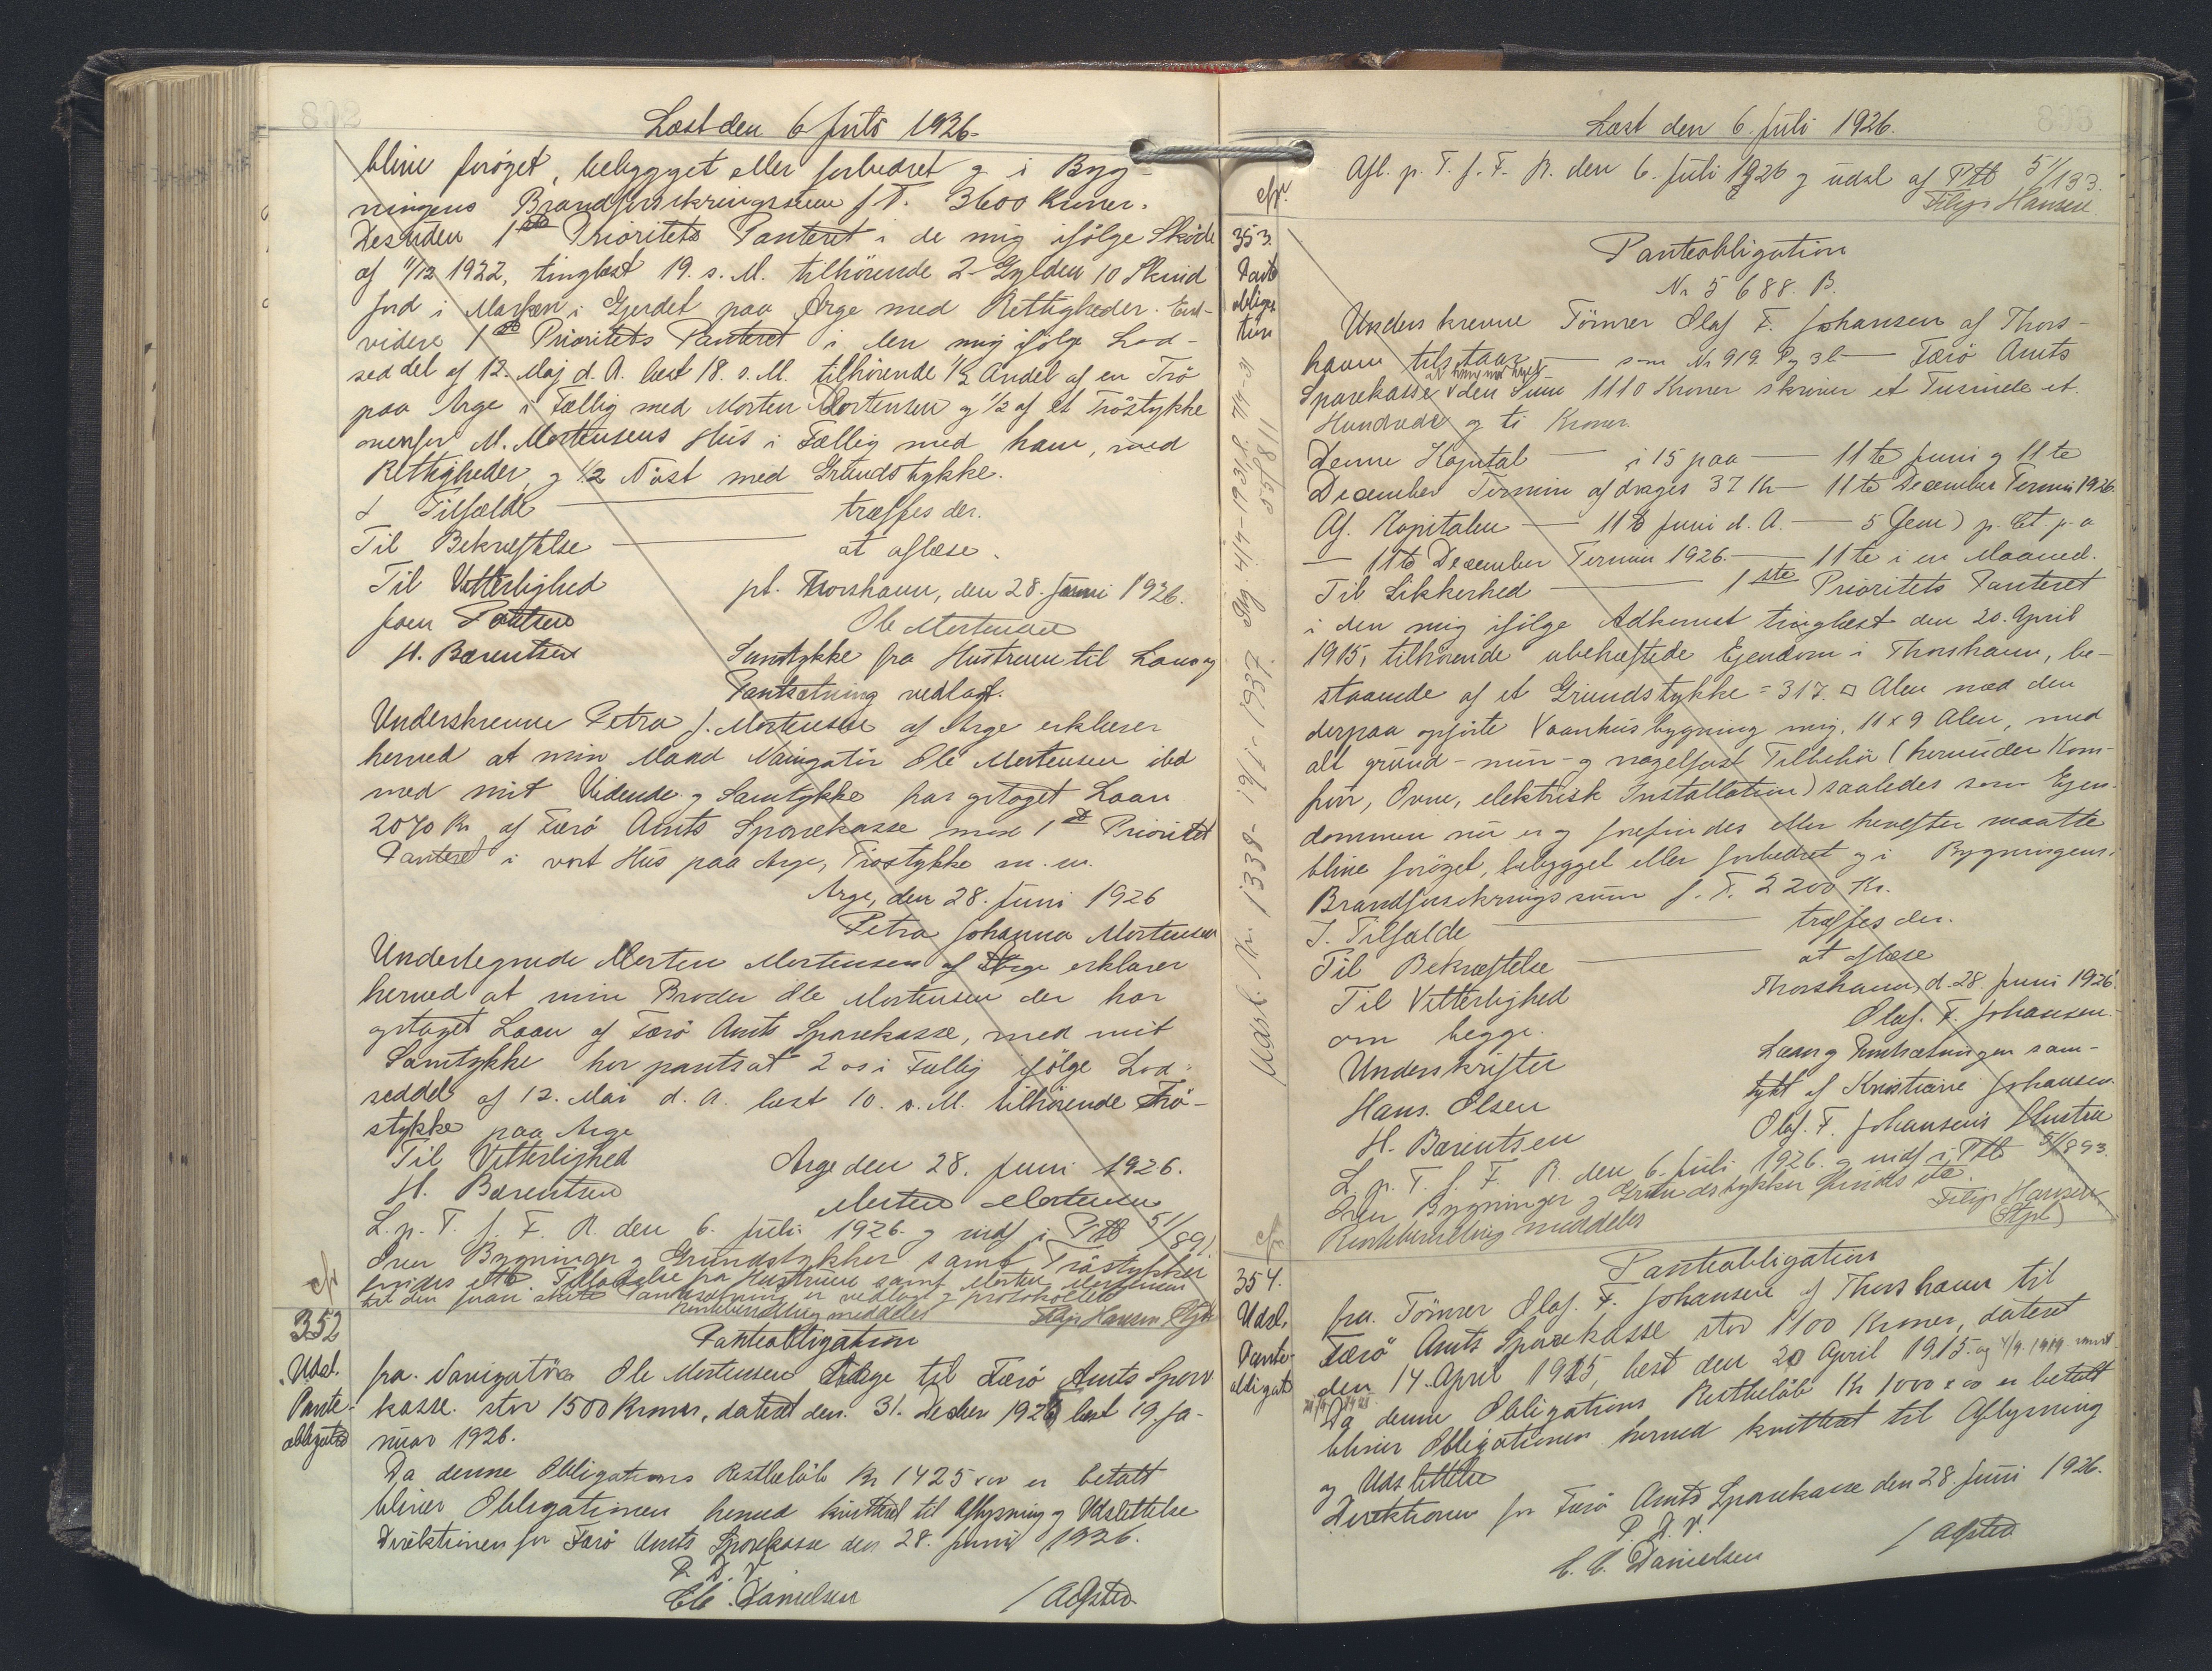 Læst den 6 Juli 1926.
blive forøget, bebygget eller forbedret og i Byg-
ningens Brandforsikringssum f. T. 3600 Kroner.
Desuden 1ste Prioritets Panteret i de mig ifølge Skøde
af 11/12 1922, tinglæst 19. s. M. tilhørende 2 Gylden 10 Skind
Jord i Marken i Gjerdet paa Arge med Rettigheder. End-
videre 1ste Prioritets Panteret i den mig ifølge Lod-
seddel af 12. Maj d. A. læst 18. s. M. tilhørende 1/2 Andel af en Trø
paa Arge i Fællig med Morten Mortensen og 1/2 af et Trøstykke
ovenfor M. Mortensens Hus i Fællig med ham, med
Rettigheder og 1/2 Nøst med Grundstykke.
I Tilfælde — træffes der.
Til Bekræftelse — at aflæse.
Til Vitterlighed pt. Thorshavn, den 28. Juni 1926.
Joen Poulsen Ole Mortensen
H. Bærentsen Samtykke fra Hustruen til Laan og
Pantsætning vedlagt.
Underskrevne Petra J. Mortensen af Arge erklærer
herved at min Mand Navigatør Ole Mortensen ibd
med mit Vidende og Samtykke har optaget Laan
2070 Kr af Færø Amts Sparekasse mod 1ste Prioritets
Panteret i vort Hus paa Arge, Trøstykke m. m.
Arge, den 28. Juni 1926
Petra Johanna Mortensen
Undertegnede Morten Mortensen af Arge erklærer
herved at min Broder Ole Mortensen der har
optaget Laan af Færø Amts Sparekasse, med mit
Samtykke har pantsat 2 os i Fællig ifølge Lod-
seddel af 12. Mai d. A. læst 10. s. M. tilhørende Trø-
stykke paa Arge
Til Vitterlighed Arge den 28. Juni 1926.
H. Bærentsen Morten Mortensen
L. p. T. f. F. R. den 6. Juli 1926 og indf i Ptb 51/891
Over Bygninger og Grundstykker samt Trøstykker
findes Tilladelse fra Hustruen samt Morten Mortensen
til den foran skete Pantsætning er vedlagt og protokolleret
Renteberedning meddeles Filip Hansen Stpl
cfr
352
Udsl.
Pante-
obligation
Panteobligation
fra Navigatør Ole Mortensen Arge til Færø Amts Spare
kasse stor 1500 Kroner, dateret den 31. Decber 1925 læst 19. Ja-
nuar 1926.
Da denne Obligations Restbeløb Kr 1425 x 00 er betalt
bliver Obligationen herved kvitteret til Aflysning og Udslettelse
Direktionen for Færø Amts Sparekasse den 28. Juni 1926.
P. D. V.
C. C. Danielsen / Adsted
Læst den 6. Juli 1926.
Afl. p. T. f. F. R. den 6. Juli 1926 og udsl af Ptb 51/133.
Filip Hansen
cfr.
353.
Pante
obliga
tion
Panteobligation
Nr 5688. B.
Underskrevne Tømrer Olaf F. Johansen af Thors-
havn tilstaar — som Nr 919. Pg 3b — Færø Amts
Sparekasse den Sum 1110 Kroner skriver et Tusinde et
Hundrede og ti Kroner.
Denne Kapital — i 15 paa — 11te Juni og 11te
December Termin afdrages 37 Kr — 11te December Termin 1926.
Af Kapitalen — 11te Juni d. A. — 5 (fem) p. Ct. p. a
— 11te December Termin 1926. — 11te i en Maaned.
Til Sikkerhed — 1ste Prioritets Panteret
i den mig ifølge Adkomst tinglæst den 20. April
1915, tilhørende ubehæftede Ejendom i Thorshavn, be-
staaende af et Grundstykke = 317 □ Alen med den
derpaa opførte Vaanhusbygning 11 x 9 Alen, med
alt grund- mur- og nagelfast Tilbehør (herunder Kom-
fur, Ovne, elektrisk Installation) saaledes som Ejen-
dommen nu er og forefindes eller herefter maatte
blive forøget, bebygget eller forbedret og i Bygningens
Brandforsikringssum f. T. 2200 Kr.
I Tilfælde — træffes der.
Til Bekræftelse — at aflæse
Til Vitterlighed Thorshavn, d. 28. Juni 1926.
om begge Olaf. F. Johansen.
Underskrifter Laan og Pantsætningen sam-
Hans. Olsen tykt af Kristiane Johansen
H. Bærentsen Olaf. F. Johansens Hustru
L. p. T. f. F. R. den 6. Juli 1926. og indf i Ptb 51/893.
Over Bygninger og Grundstykker findes
Renteberedning meddeles Filip Hansen
(Stpl)
Udsl. Nr. 1338 - 19/1 - 1937
cfr
354.
Udsl.
Pante-
obligat
Panteobligation
fra Tømrer Olaf. F. Johansen af Thorshavn til
Færø Amts Sparekasse stor 1100 Kroner, dateret
den 14. April 1915, læst den 20 April 1915. og 4/9. 1919
Da denne Obligations Restbeløb Kr 1000 x 00 er betalt
bliver Obligationen herved kvitteret til Aflysning
og Udslettelse
Direktionen for Færø Amts Sparekasse den 28. Juni 1926.
P. D. V.
C. C. Danielsen / Adsted